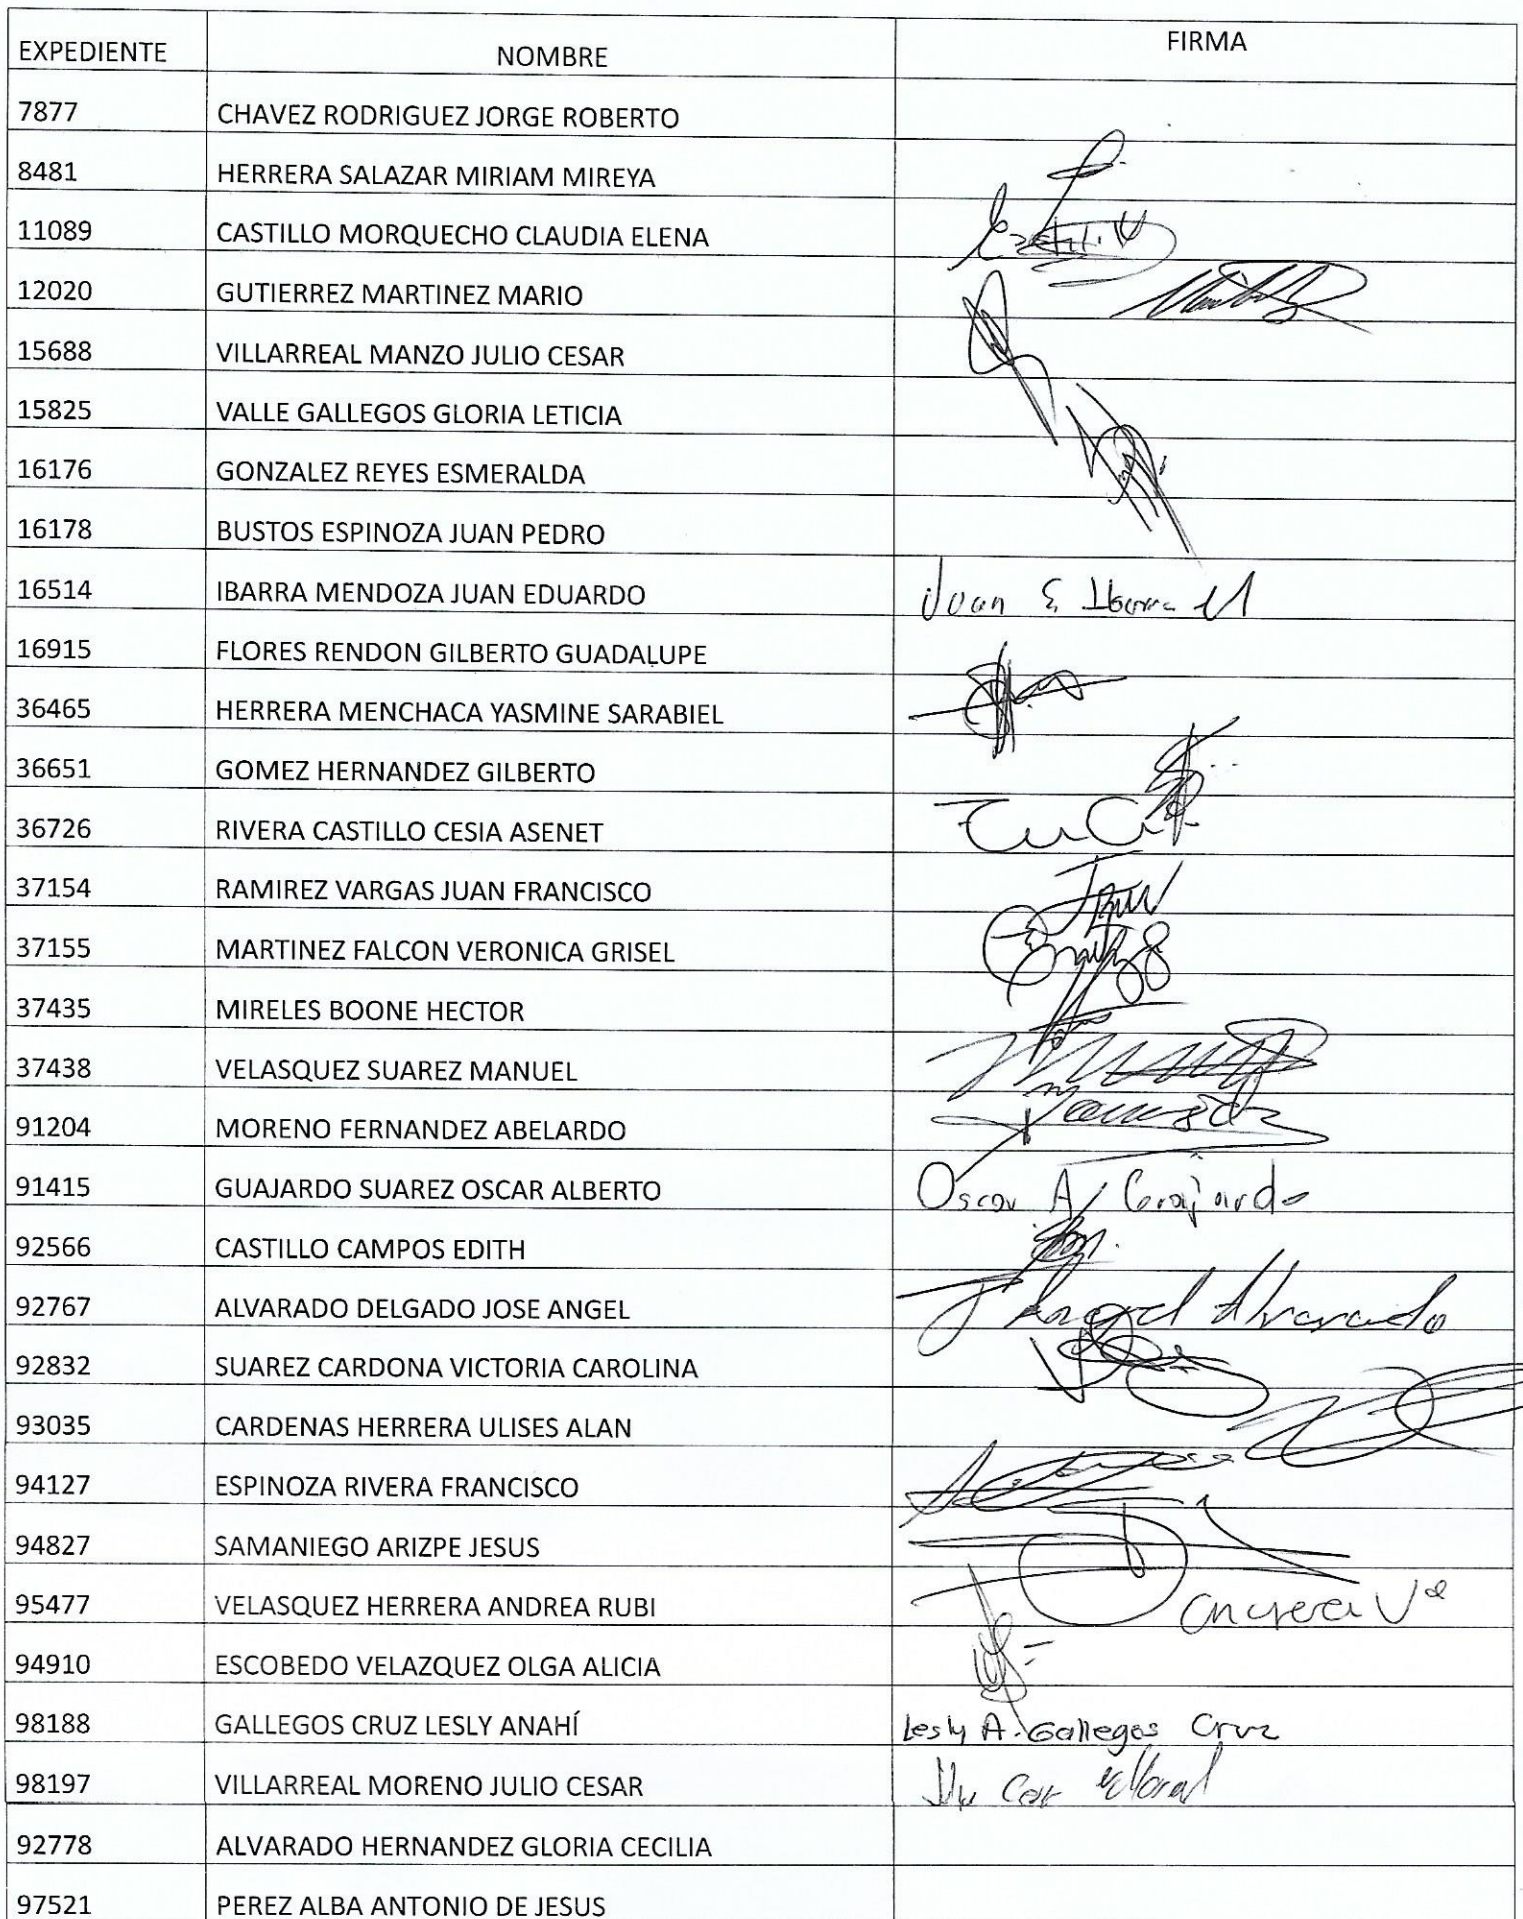 EXPEDIENTE NOMBRE FIRMA
7877 CHAVEZ RODRIGUEZ JORGE ROBERTO
8481 HERRERA SALAZAR MIRIAM MIREYA
11089 CASTILLO MORQUECHO CLAUDIA ELENA
12020 GUTIERREZ MARTINEZ MARIO
15688 VILLARREAL MANZO JULIO CESAR
15825 VALLE GALLEGOS GLORIA LETICIA
16176 GONZALEZ REYES ESMERALDA
16178 BUSTOS ESPINOZA JUAN PEDRO
16514 IBARRA MENDOZA JUAN EDUARDO Juan E Ibarra M
16915 FLORES RENDON GILBERTO GUADALUPE
36465 HERRERA MENCHACA YASMINE SARABIEL
36651 GOMEZ HERNANDEZ GILBERTO
36726 RIVERA CASTILLO CESIA ASENET
37154 RAMIREZ VARGAS JUAN FRANCISCO
37155 MARTINEZ FALCON VERONICA GRISEL
37435 MIRELES BOONE HECTOR
37438 VELASQUEZ SUAREZ MANUEL
91204 MORENO FERNANDEZ ABELARDO
91415 GUAJARDO SUAREZ OSCAR ALBERTO Oscar A. Guajardo
92566 CASTILLO CAMPOS EDITH
92767 ALVARADO DELGADO JOSE ANGEL J Angel Alvarado
92832 SUAREZ CARDONA VICTORIA CAROLINA
93035 CARDENAS HERRERA ULISES ALAN
94127 ESPINOZA RIVERA FRANCISCO
94827 SAMANIEGO ARIZPE JESUS
95477 VELASQUEZ HERRERA ANDREA RUBI
94910 ESCOBEDO VELAZQUEZ OLGA ALICIA
98188 GALLEGOS CRUZ LESLY ANAHÍ Lesly A. Gallegos Cruz
98197 VILLARREAL MORENO JULIO CESAR
92778 ALVARADO HERNANDEZ GLORIA CECILIA
97521 PEREZ ALBA ANTONIO DE JESUS